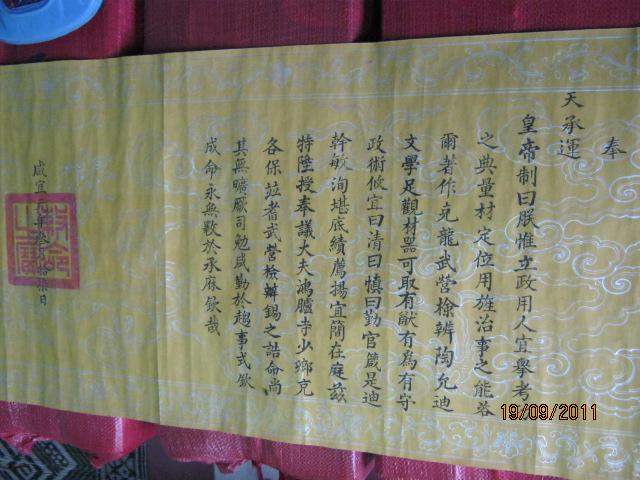 奉
天承運
皇帝制曰朕惟立政用人宜舉考
之典量材定位用旌治事之能咨
爾著作充龍武營撿辨陶允迪
文學足觀材器可取有猷有為有守
政術攸宜曰清曰慎曰勤官箴是迪
幹敏洵堪底績薦揚宜簡在庭茲
特陞授奉議大夫鴻臚寺少卿充
各保竝者武營撿辦錫之誥命尚
其無曠厥司勉咸勤於趨事式欽
成命永無斁於承庥欽哉
咸宜元年叁月拾柒日
19/09/2011